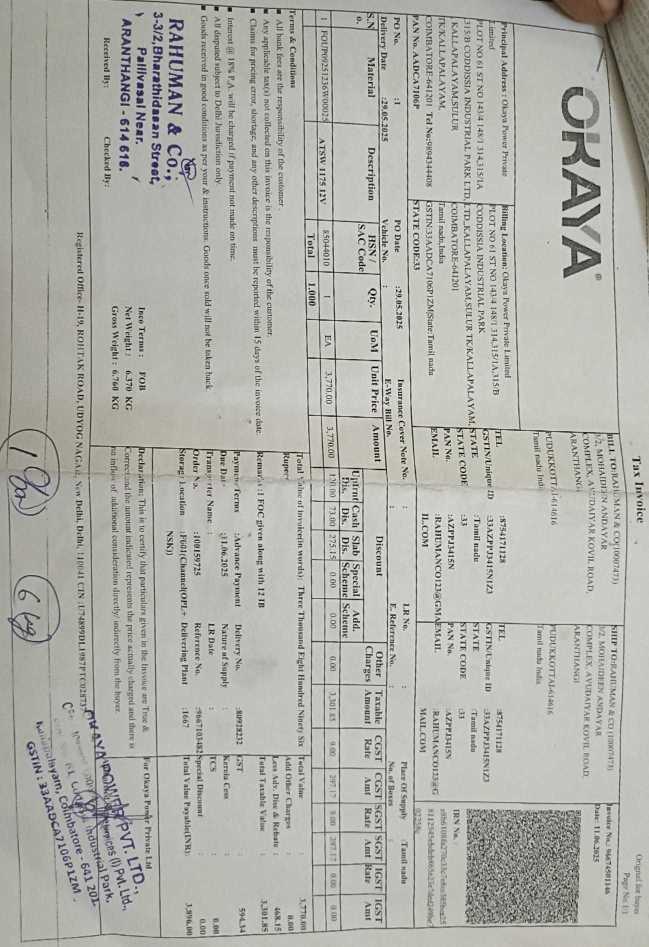 Original for buyer
Page No. 1/1
Tax Invoice
OKAYA®
Invoice No.: 96674501146
Date: 11.06.2025
Principal Address : Okaya Power Private Limited
PLOT NO 61 ST NO 143/4 148/1 314,315/1A
315/B CODDISSIA INDUSTRIAL PARK LTD,
KALLAPALAYAM,SULUR
TK/KALLAPALAYAM,
COIMBATORE-641201 Tel No:9894344408
PAN No. AADCA7106P
Billing Location: Okaya Power Private Limited
PLOT NO 61 ST NO 143/4 148/1 314,315/1A,315/B
CODDISSIA INDUSTRIAL PARK
LTD.,KALLAPALAYAM,SULUR TK/KALLAPALAYAM,
COIMBATORE-641201
Tamil nadu,India
GSTIN:33AADCA7106P1ZM|State:Tamil nadu
STATE CODE:33
BILL TO:RAHUMAN & CO(10007473)
3/2, MOHAIDEEN ANDAVAR
COMPLEX, AVUDAIYAR KOVIL ROAD,
ARANTHANGI
PUDUKKOTTAI-614616
Tamil nadu India
TEL :8754171128
GSTIN/Unique ID :33AZPPJ3415N1Z3
STATE :Tamil nadu
STATE CODE :33
PAN No. :AZPPJ3415N
EMAIL :RAHUMANCO123@GMA
IL.COM
SHIP TO:RAHUMAN & CO (10007473)
3/2, MOHAIDEEN ANDAVAR
COMPLEX, AVUDAIYAR KOVIL ROAD,
ARANTHANGI
PUDUKKOTTAI-614616
Tamil nadu India
TEL :8754171128
GSTIN/Unique ID :33AZPPJ3415N1Z3
STATE :Tamil nadu
STATE CODE :33
PAN No. :AZPPJ3415N
EMAIL :RAHUMANCO123@G
MAIL.COM
IRN No. :
PO No. :1 PO Date :29.05.2025 Insurance Cover Note No. : LR No. : Place Of Supply :Tamil nadu
Delivery Date :29.05.2025 Vehicle No. : E-Way Bill No. : E. Reference No. : No. of Boxes
S.N o. Material Description HSN / SAC Code Qty. UoM Unit Price Amount Discount Other Charges Taxable Amount CGST Rate CGST Amt SGST Rate SGST Amt IGST Rate IGST Amt
Upfrnt Dis. Cash Dis. Slab Dis. Special Scheme Add. Scheme
1 ATSW 1175 12V 85044010 1 EA 3,770.00 3,770.00 120.00 73.00 275.15 0.00 0.00 0.00 3,301.85 9.00 297.17 9.00 297.17 0.00 0.00
Total 1.000
Terms & Conditions
■ All bank fees are the responsibility of the customer .
■ Any applicable tax(s) not collected on this invoice is the responsibility of the customer.
■ Claims for pricing error, shortage, and any other descriptions must be reported within 15 days of the invoice date.
■ Interest @ 18% P.A. will be charged if payment not made on time.
■ All disputed subject to Delhi Jurisdiction only.
■ Goods received in good conditions as per your & instructions. Goods once sold will not be taken back.
Total Value of Invoice(in words): Three Thousand Eight Hundred Ninety Six Rupees
Remarks :1 FOC given along with 12 IB
Payment Terms :Advance Payment Delivery No. :80918232
Due Date :11.06.2025 Nature of Supply :
Transporter Name : LR Date :
Order No. :100159725 Reference No. :9667103482
Storage Location :F601(Channel(OPL+NSK)) Delivering Plant :1667
Total Value : 3,770.00
Add Other Charges : 0.00
Less Adv. Disc & Rebate : 468.15
Total Taxable Value : 3,301.85
GST : 594.34
Kerala Cess :
TCS : 0.00
Special Discount : 0.00
Total Value Payable(INR): 3,896.00
RAHUMAN & CO.,
3-3/2,Bharathidasan Street,
Pallivasal Near,
ARANTHANGI - 614 616.
Received By: Checked By:
Inco Terms : FOB
Net Weight : 6.370 KG
Gross Weight : 6.760 KG
Declaration; This is to certify that particulars given in the Invoice are True &
Correct and the amount indicated represents the price actually charged and there is
no inflow of additional consideration directly/ indirectly from the buyer.
For Okaya Power Private Ltd
OKAYA POWER PVT. LTD.,
Industrial Park,
Kallapalayam, Coimbatore - 641 201.
GSTIN : 33AADCA7106P1ZM
Registered Office- H-19, ROHTAK ROAD, UDYOG NAGAR, New Delhi, Delhi, 110041 CIN :U74899DL1987PTC02873